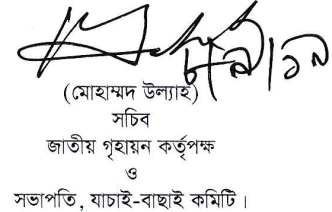 (মোহাম্মদ উল্যাহ)
সচিব
জাতীয় গৃহায়ন কর্তৃপক্ষ
ও
সভাপতি, যাচাই-বাছাই কমিটি।